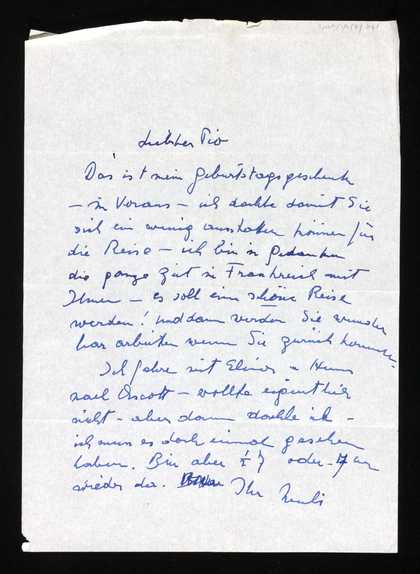 Liebster Pio
Das ist mein Geburtstagsgeschenk
– in Voraus – ich dachte damit Sie
sich ein wenig ausstatten können für
die Reise – ich bin in Gedanken
die ganze Zeit in Frankreich mit
Ihnen – es soll eine schöne Reise
werden! und dann werden Sie wunder
bar arbeiten wenn Sie zurück kommen.
Ich fahre mit Elinor u Hans
nach – wollte eigentlich
nicht – aber dann dachte ich –
ich muss es doch einmal gesehen
haben. Bin aber oder
wieder da. Ihr